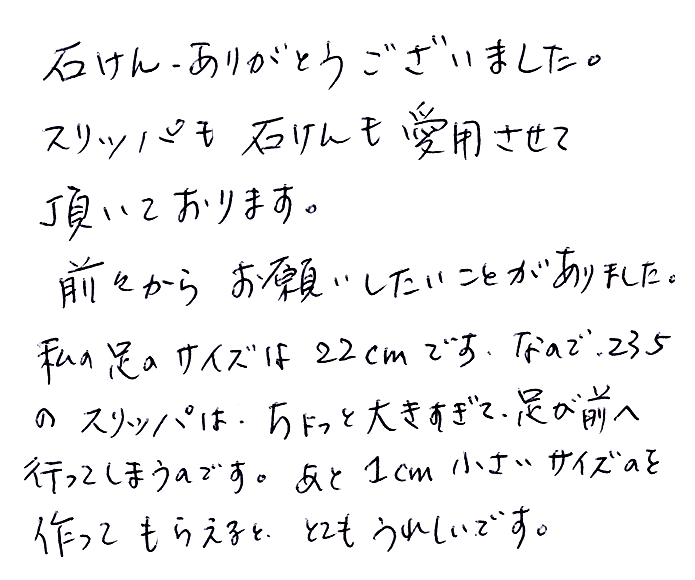 石けん、ありがとうございました。
スリッパも 石けんも 愛用させて
頂いております。
前々から お願いしたいことがありました。
私の足のサイズは 22cmです、なので、23.5
のスリッパは、ちょっと大きすぎて、足が前へ
行ってしまうのです。あと 1cm 小さいサイズのを
作って もらえると、とても うれしいです。